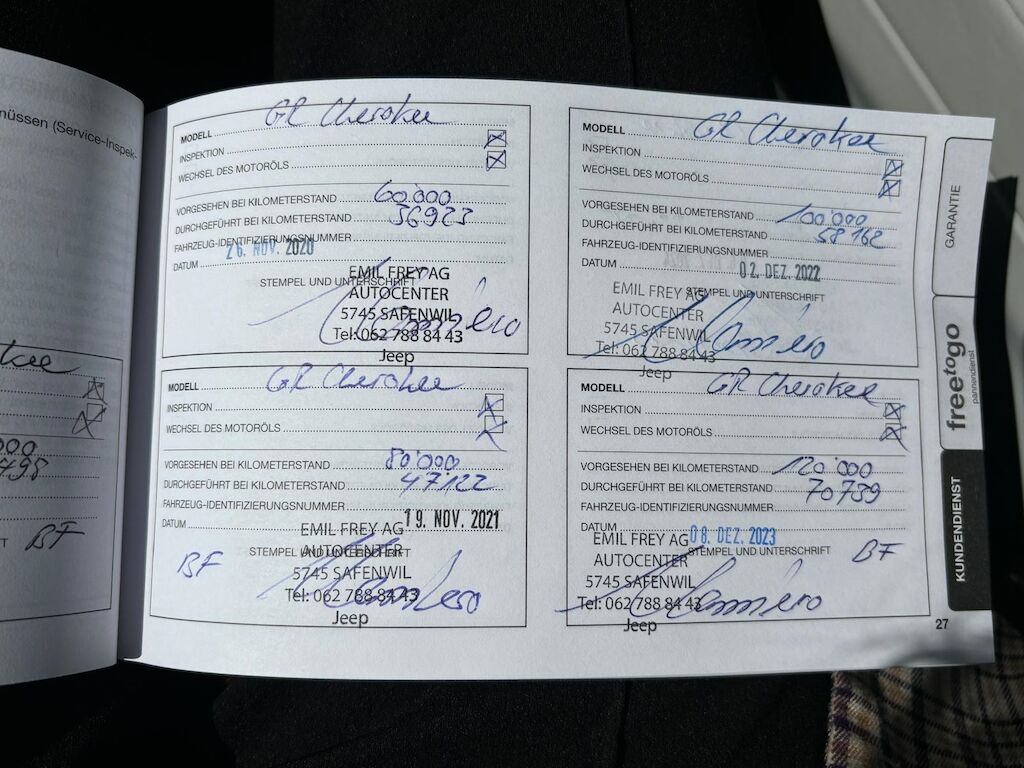 nüssen (Service-Inspek-
000
498
BF
MODELL GR Cherokee
INSPEKTION
WECHSEL DES MOTORÖLS
VORGESEHEN BEI KILOMETERSTAND 60.000
DURCHGEFÜHRT BEI KILOMETERSTAND 36923
FAHRZEUG-IDENTIFIZIERUNGSNUMMER
DATUM 26. NOV. 2020
STEMPEL UND UNTERSCHRIFT
EMIL FREY AG
AUTOCENTER
5745 SAFENWIL
Tel: 062 788 84 43
Jeep
MODELL GR Cherokee
INSPEKTION
WECHSEL DES MOTORÖLS
VORGESEHEN BEI KILOMETERSTAND 80.000
DURCHGEFÜHRT BEI KILOMETERSTAND 47122
FAHRZEUG-IDENTIFIZIERUNGSNUMMER
DATUM 19. NOV. 2021
STEMPEL UND UNTERSCHRIFT
EMIL FREY AG
AUTOCENTER
5745 SAFENWIL
Tel: 062 788 84 43
Jeep
BF
MODELL GR Cherokee
INSPEKTION
WECHSEL DES MOTORÖLS
VORGESEHEN BEI KILOMETERSTAND 100.000
DURCHGEFÜHRT BEI KILOMETERSTAND 58162
FAHRZEUG-IDENTIFIZIERUNGSNUMMER
DATUM 02. DEZ. 2022
STEMPEL UND UNTERSCHRIFT
EMIL FREY AG
AUTOCENTER
5745 SAFENWIL
Tel: 062 788 84 43
Jeep
MODELL GR Cherokee
INSPEKTION
WECHSEL DES MOTORÖLS
VORGESEHEN BEI KILOMETERSTAND 120.000
DURCHGEFÜHRT BEI KILOMETERSTAND 70739
FAHRZEUG-IDENTIFIZIERUNGSNUMMER
DATUM 08. DEZ. 2023
STEMPEL UND UNTERSCHRIFT
EMIL FREY AG
AUTOCENTER
5745 SAFENWIL
Tel: 062 788 84 43
Jeep
BF
GARANTIE
freetogo
pannendienst
KUNDENDIENST
27